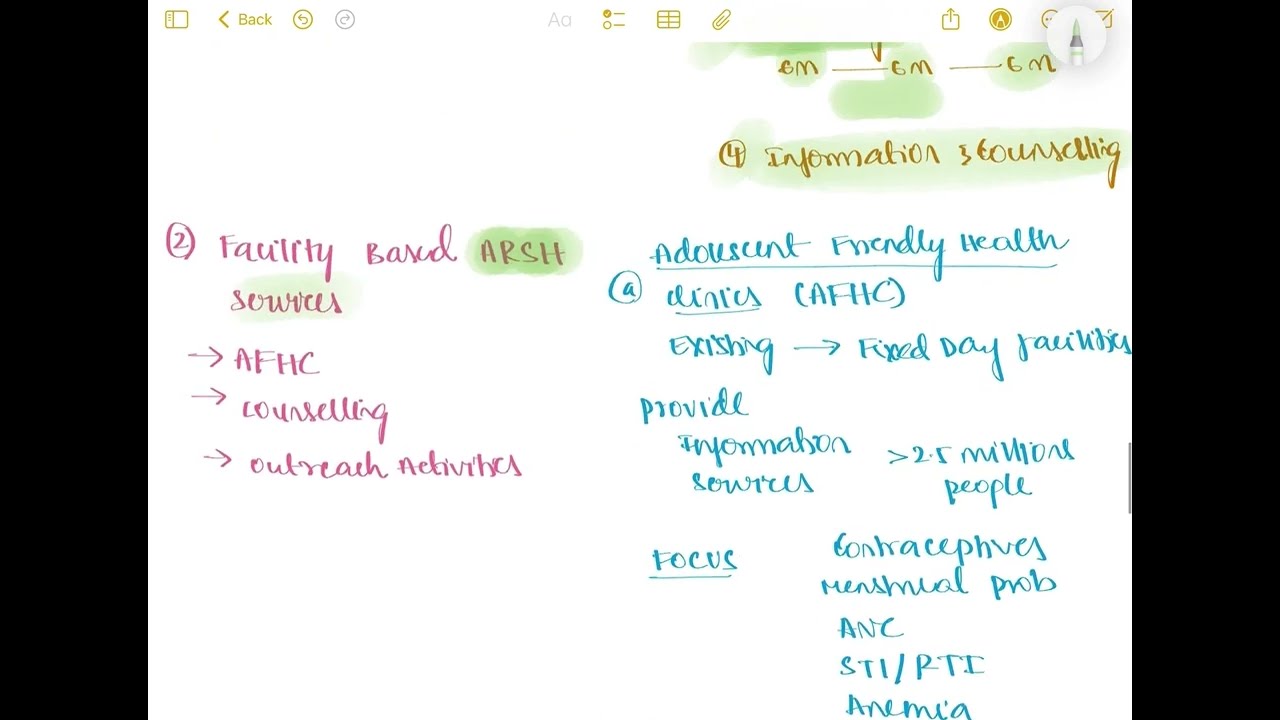 Back
Aa
6M — 6M — 6M
④ Information & Counselling
② Facility Based ARSH
sources
→ AFHC
→ counselling
→ outreach Activities
Adolescent Friendly Health
ⓐ clinics (AFHC)
Existing → Fixed Day facilities
provide
Information
sources
>2.5 millions
people
FOCUS
Contraceptives
menstrual prob
ANC
STI/RTI
Anemia